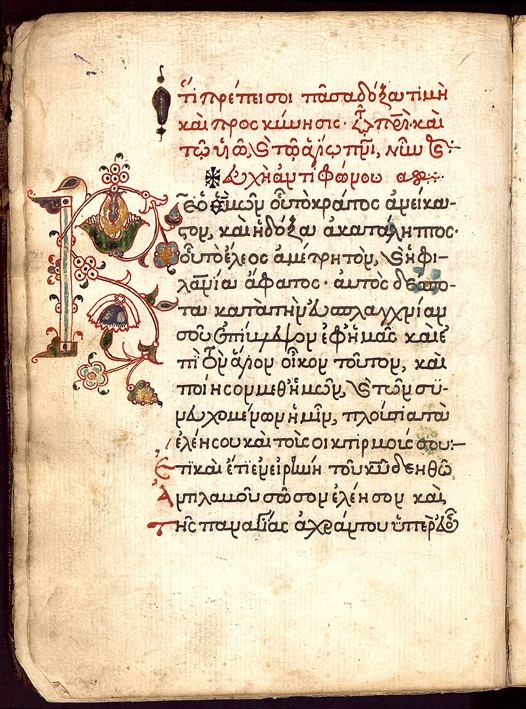 Ὅτι πρέπει σοι πᾶσα δόξα τιμὴ
καὶ προσκύνησις· τῶ πρὶ καὶ
τῶ υἱῶ, καὶ τῶ ἁγίω πνι, νῦν καὶ:-
Εὐχὴ ἀντιφώνου α
Κε ὁ θς ἡμῶν οὗ τὸ κράτος ἀνείκασ-
τον, καὶ ἡ δόξα ἀκατάληπτος·
οὗ τὸ ἔλεος ἀμέτρητον, καὶ ἡ φι-
λανία ἄφατος· αὐτὸς δέσπο-
τα κατὰ τὴν εὐσπλαγχνίαν
σου ἐπίβλεψον ἐφ ἡμᾶς καὶ ἐ-
πὶ τὸν ἅγιον οἶκον τοῦτον, καὶ
ποίησον μεθ ἡμῶν, καὶ τῶν συ-
νευχομένων ἡμῖν, πλούσια τὰ
ἐλέη σου καὶ τοὺς οἰκτιρμούς σου:-
Ἔτι καὶ ἔτι ἐν εἰρήνη τοῦ κυ δεηθῶ
Ἀντιλαβοῦ σῶσον ἐλέησον καὶ
Τῆς παναγίας ἀχράντου ὑπερευ